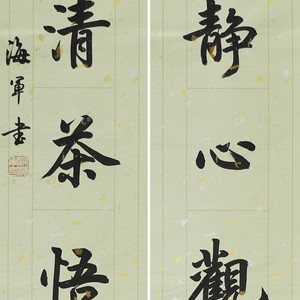 靜心觀
清茶悟
海軍書